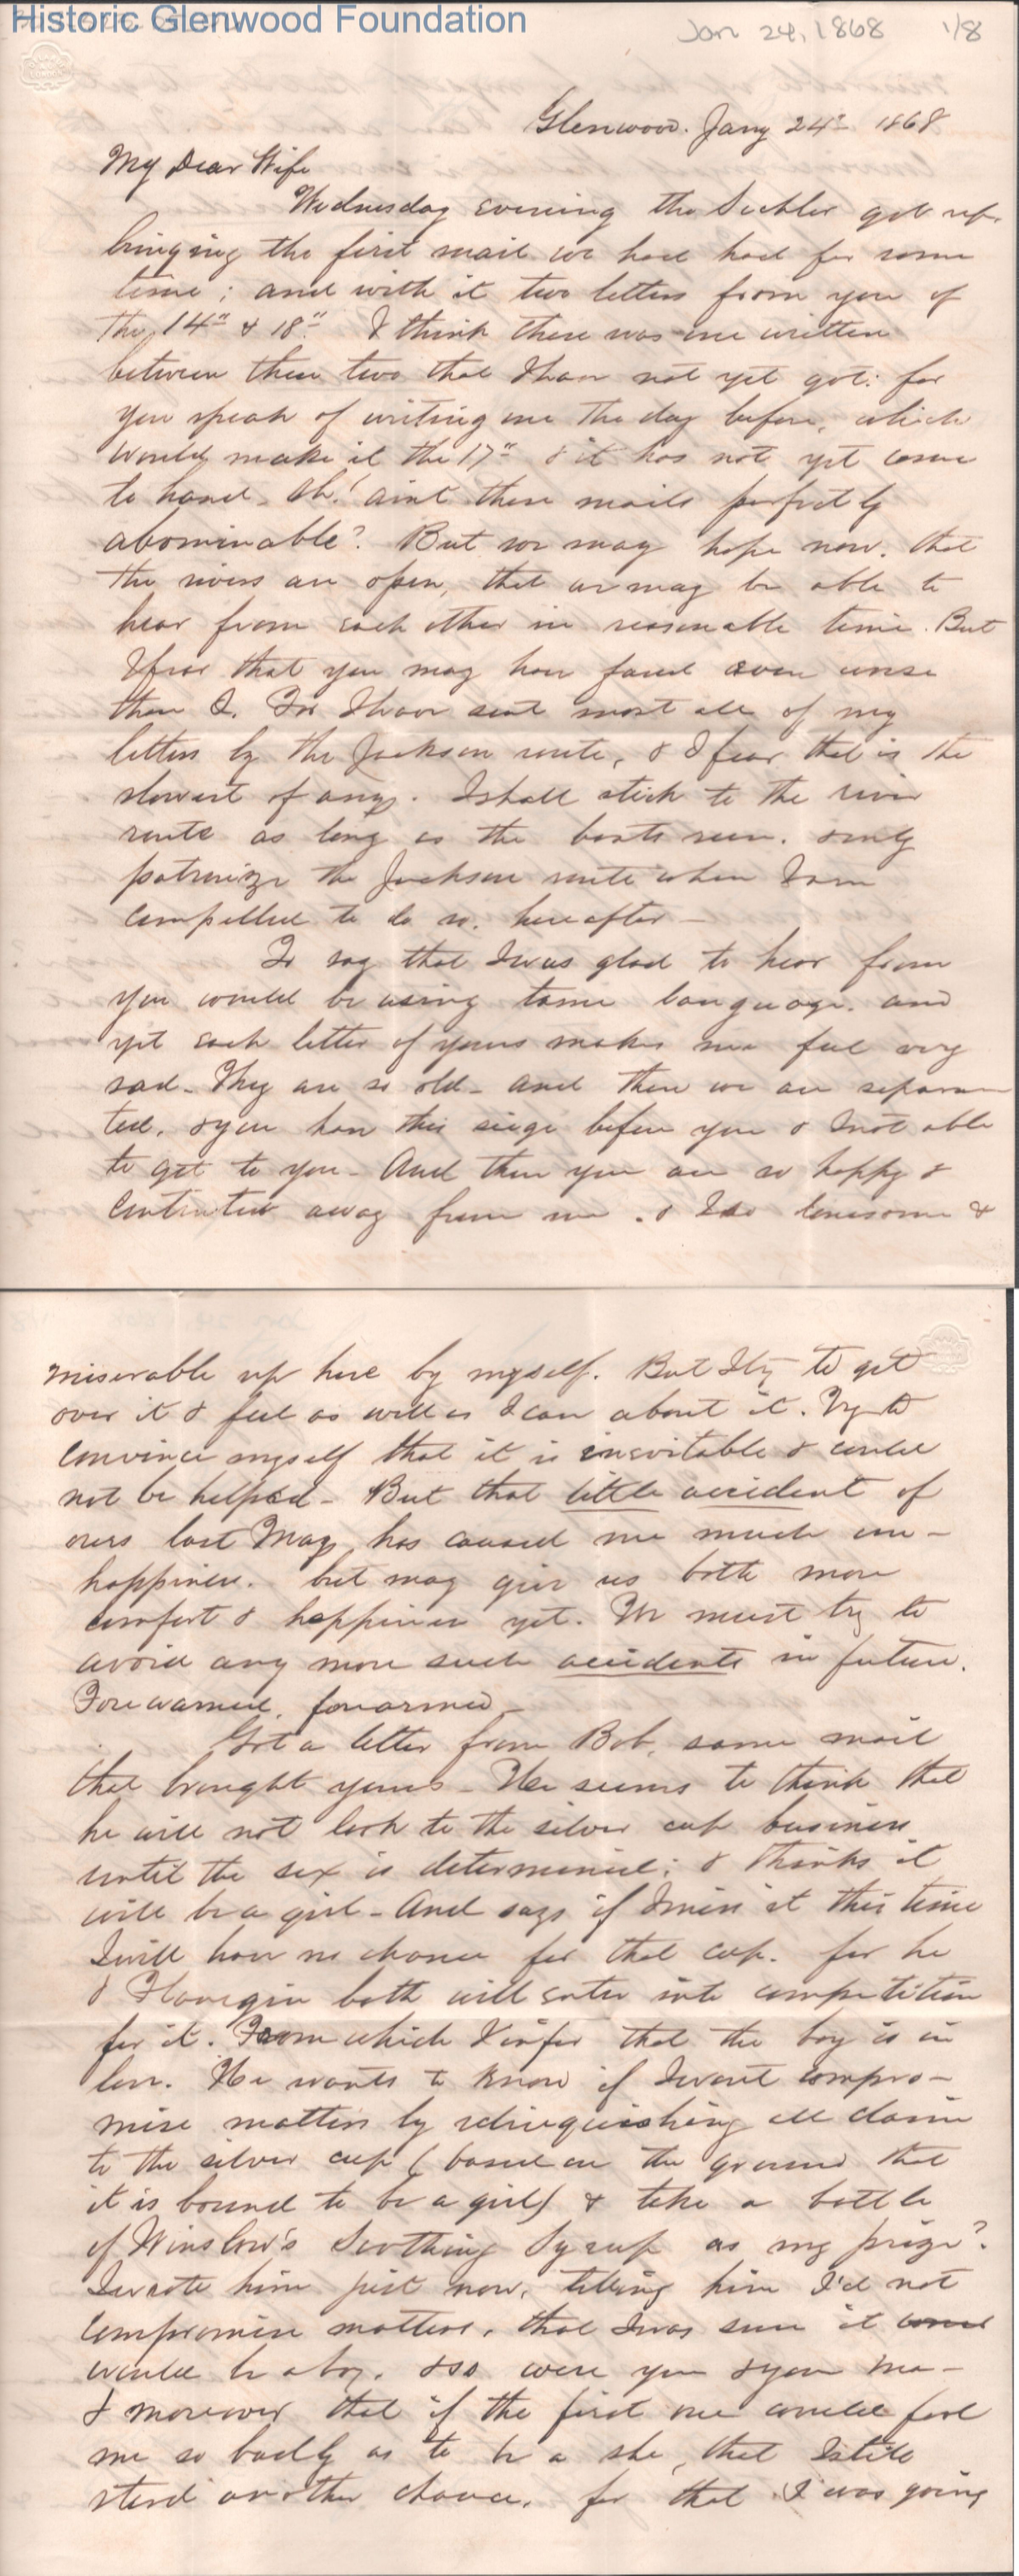 Historic Glenwood Foundation
Jan 24, 1868 1/8
Glenwood. Jany 24th 1868
My Dear Wife
Wednesday evening the got up
bringing the first mail we had had for some
time; and with it two letters from you of
the 14" & 18". I think there was one written
between these two that I have not yet got: for
you speak of writing me the day before, which
would make it the 17" & it has not yet come
to hand. Oh! aint these mails perfectly
abominable? But we may hope now, that
the rivers are open, that we may be able to
hear from each other in reasonable time. But
I fear that you may have fared even worse
than I. For I have sent most all of my
letters by the Jackson route, & I fear that is the
slowest of any. I shall stick to the river
route as long as the boats run. only
patronize the Jackson route when I am
compelled to do so. hereafter —
To say that I was glad to hear from
you would be using tame language. and
yet each letter of yours makes me feel very
sad. They are so old - and then we are separa
ted. & you have this siege before you & I not able
to get to you - And then you are so happy &
contented away from me. & I so lonesome &
miserable up here by myself. But I try to get
over it & feel as well as I can about it. Try to
convince myself that it is inevitable & could
not be helped - But that little accident of
ours last May, has caused me much un-
happiness. but may give us both more
comfort & happiness yet. We must try to
avoid any more such accidents in future.
Forewarned, forearmed -
Got a letter from Bob, same mail
that brought yours - He seems to think that
he will not look to the silver cup business
until the sex is determined: & thinks it
will be a girl - And says if I miss it this time
I will have no chance for that cup. for he
& both will enter into competition
for it. From which I infer that the boy is in
love. He wants to know if I wont compro-
mise matters by relinquishing all claim
to the silver cup (based on the ground that
it is bound to be a girl) & take a bottle
of Winslow's Soothing Syrup as my prize?
I wrote him just now, telling him I'd not
compromise matters, that I was sure it
would be a boy. & so were you & your ma -
& moreover that if the first one would fool
me so badly as to be a she, that I still
stood another chance, for that I was going